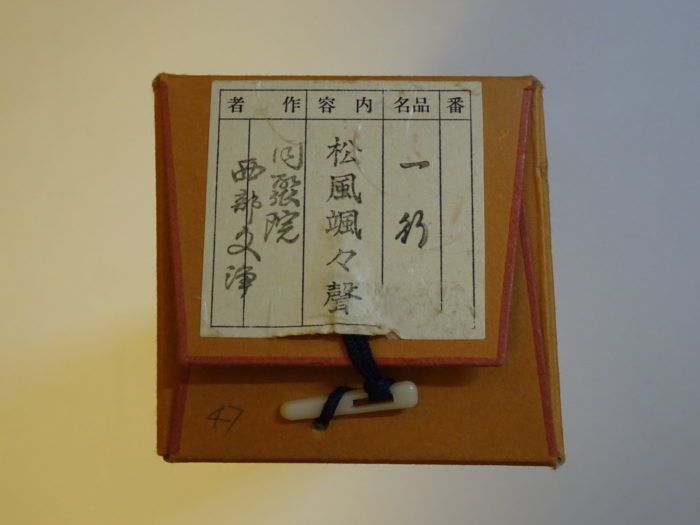 番
品名
内容
作者
一行
松風颯々聲
同聚院
西部文浄
47